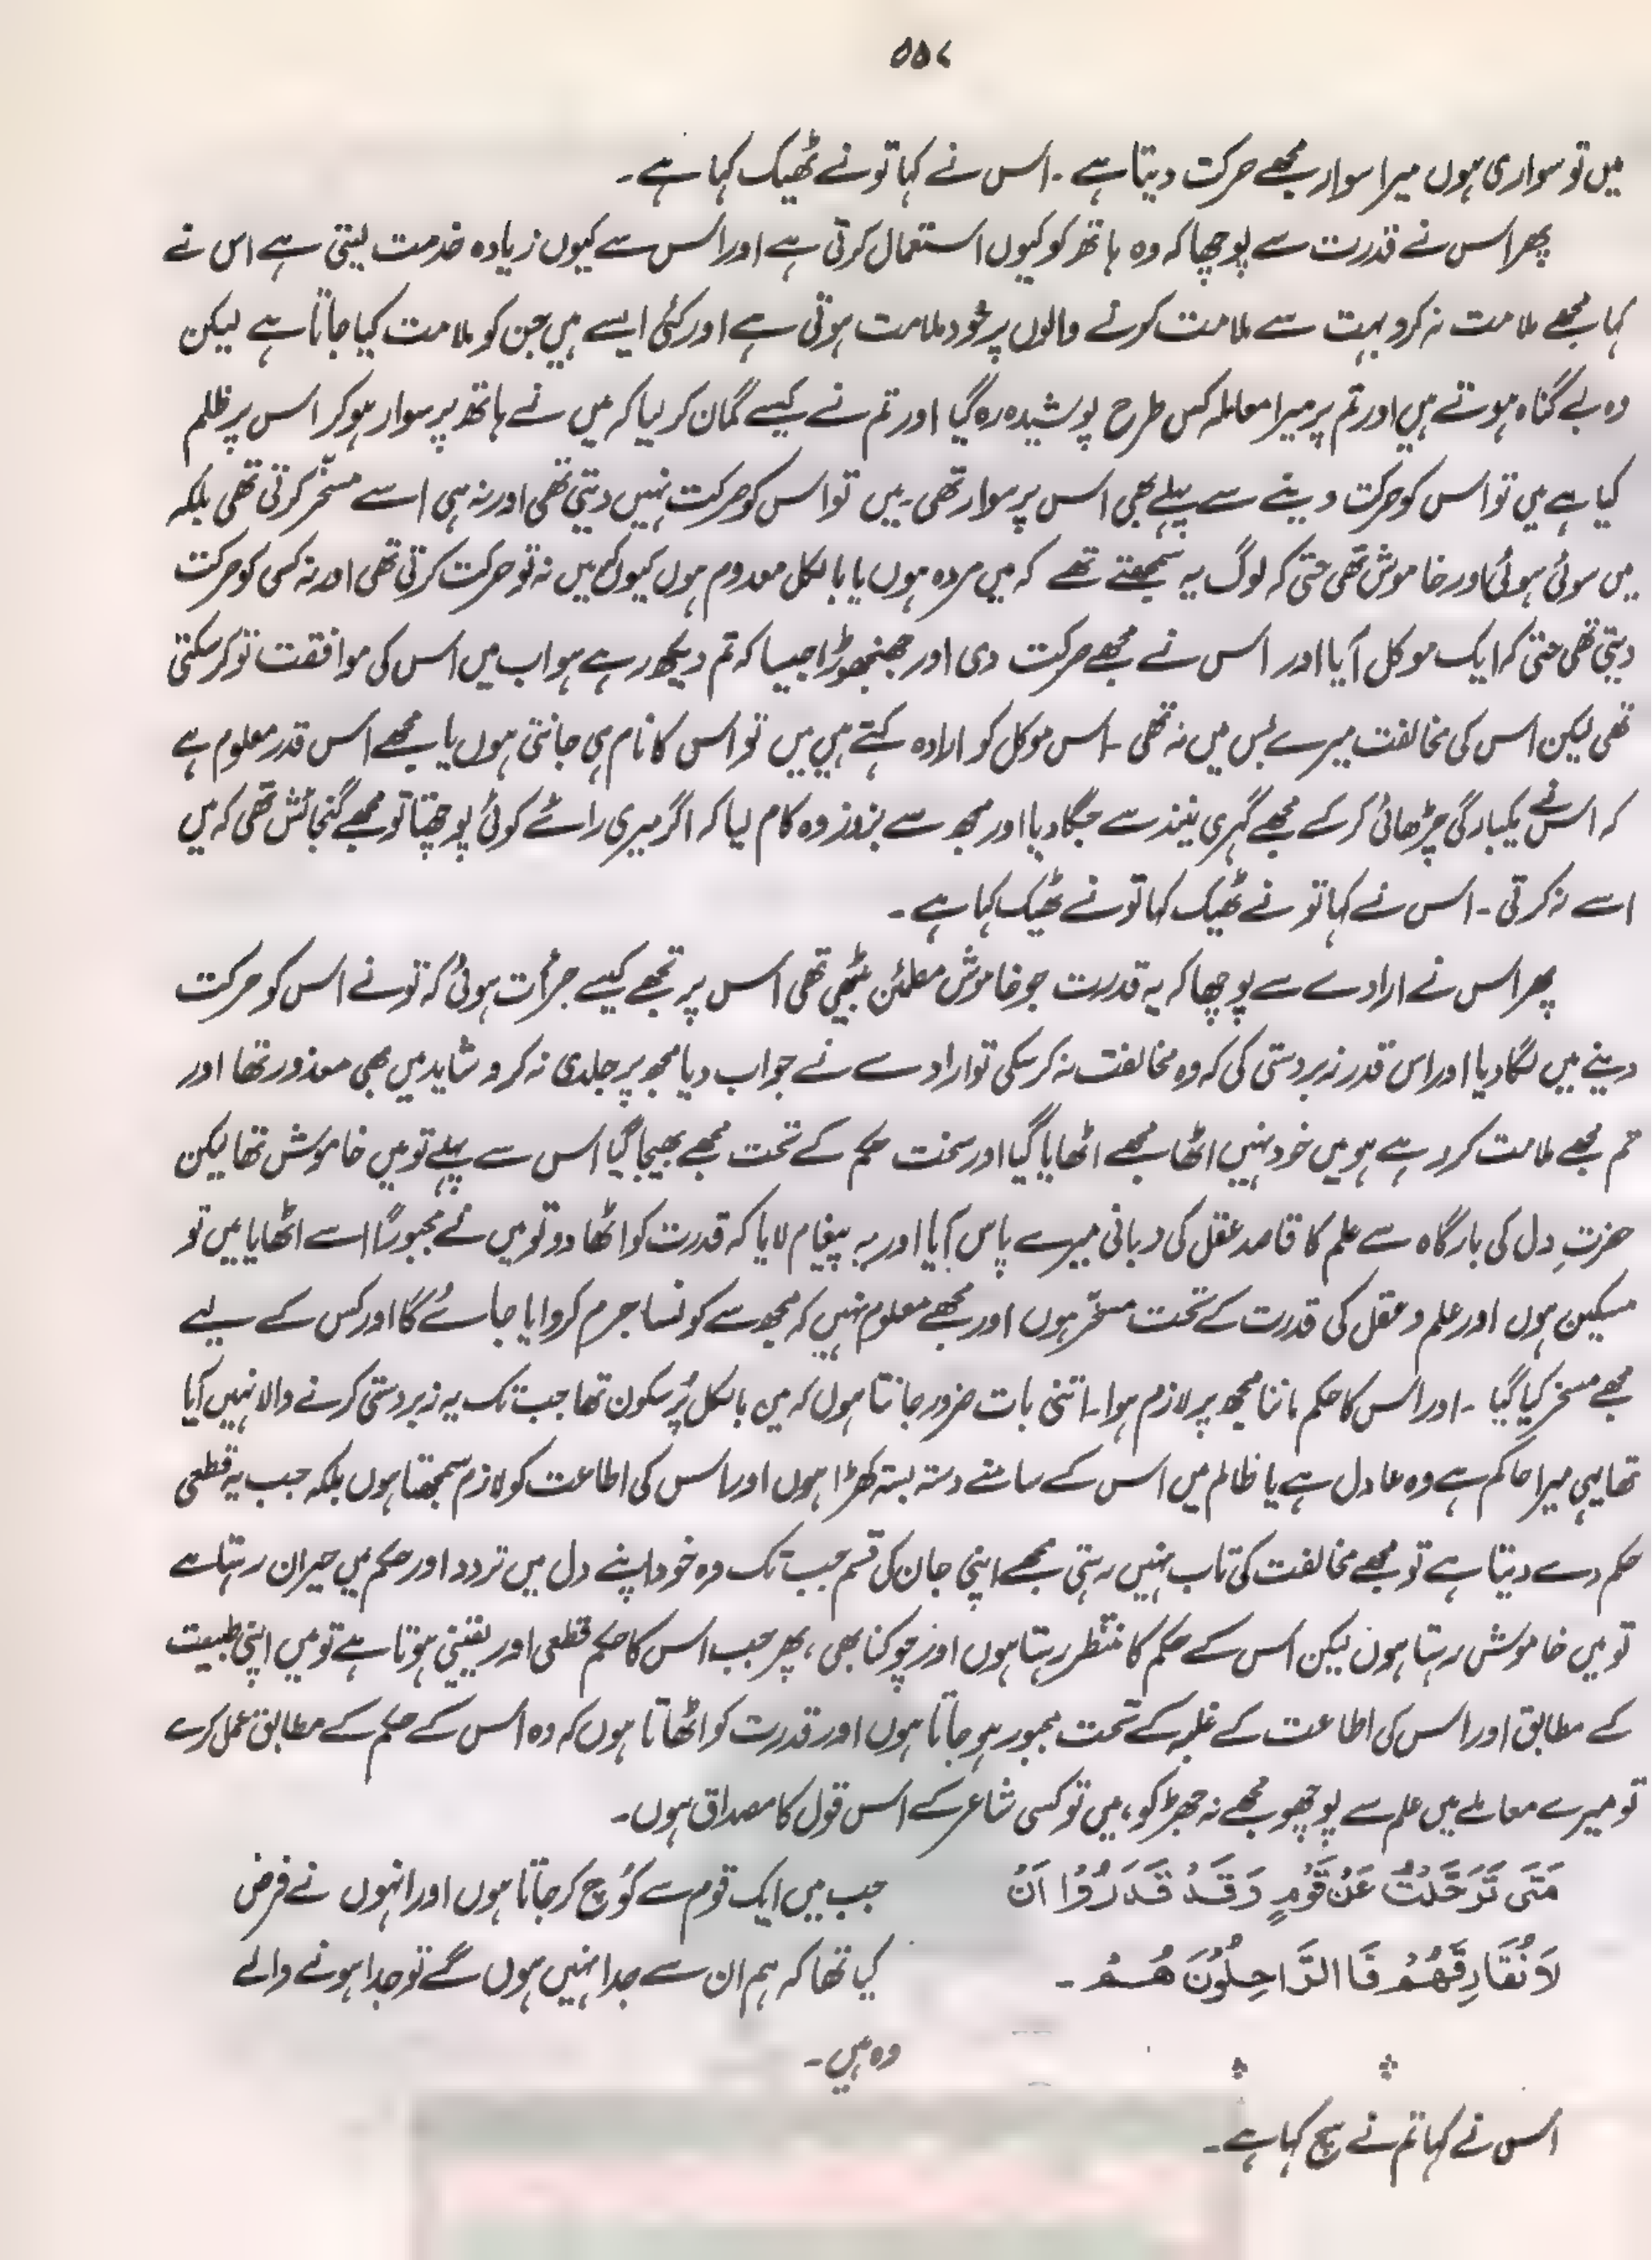 ۵۵۷
میں تو سواری ہوں میرا سوار مجھے حرکت دیتا ہے ۔ اس نے کہا تو نے ٹھیک کہا ہے ۔
پھر اس نے قدرت سے پوچھا کہ وہ ہاتھ کو کیوں استعمال کرتی ہے اور اس سے کیوں زیادہ خدمت لیتی ہے اس نے
کہا مجھے ملامت نہ کرو بہت سے ملامت کرنے والوں پر خود ملامت ہوتی ہے اور کئی ایسے ہیں جن کو ملامت کیا جاتا ہے لیکن
وہ بے گناہ ہوتے ہیں اور تم پر میرا معاملہ کس طرح پوشیدہ رہ گیا اور تم نے کیسے گمان کر لیا کہ میں نے ہاتھ پر سوار ہو کر اس پر ظلم
کیا ہے میں تو اس کو حرکت دینے سے پہلے بھی اس پر سوار تھی ۔ میں تو اس کو حرکت نہیں دیتی تھی اور نہ ہی اسے مسخّر کرتی تھی بلکہ
میں سوئی ہوئی اور خاموش تھی حتیٰ کہ لوگ یہ سمجھتے تھے کہ میں مردہ ہوں یا بالکل معدوم ہوں کیوں کہ میں نہ تو حرکت کرتی تھی اور نہ کسی کو حرکت
دیتی تھی حتیٰ کہ ایک موکل آیا اور اس نے مجھے حرکت دی اور جھنجھوڑا جیسا کہ تم دیکھ رہے ہو اب میں اس کی موافقت تو کر سکتی
تھی لیکن اس کی مخالفت میرے بس میں نہ تھی ۔ اس موکل کو ارادہ کہتے ہیں میں تو اس کا نام ہی جانتی ہوں یا مجھے اس قدر معلوم ہے
کہ اس نے یکبارگی چڑھائی کر کے مجھے گہری نیند سے جگا دیا اور مجھ سے بزور وہ کام لیا کہ اگر میری رائے کوئی پوچھتا تو مجھے گنجائش تھی کہ میں
اسے نہ کرتی ۔ اس نے کہا تو نے ٹھیک کہا تو نے ٹھیک کہا ہے ۔
پھر اس نے ارادے سے پوچھا کہ یہ قدرت جو خاموش مطمئن بیٹھی تھی اس پر تجھے کیسے جرأت ہوئی کہ تو نے اس کو حرکت
دینے میں لگا دیا اور اس قدر زبردستی کی کہ وہ مخالفت نہ کر سکی تو ارادے نے جواب دیا مجھ پر جلدی نہ کرو شاید میں بھی معذور تھا اور
تم مجھے ملامت کر رہے ہو میں خود نہیں اٹھا مجھے اٹھایا گیا اور سخت حکم کے تحت مجھے بھیجا گیا اس سے پہلے تو میں خاموش تھا لیکن
حضرتِ دل کی بارگاہ سے علم کا قاصد عقل کی زبانی میرے پاس آیا اور یہ پیغام لایا کہ قدرت کو اٹھا دو تو میں نے مجبوراً اسے اٹھایا میں تو
مسکین ہوں اور علم و عقل کی قدرت کے تحت مسخّر ہوں اور مجھے معلوم نہیں کہ مجھ سے کونسا جرم کروایا جائے گا اور کس کے لیے
مجھے مسخر کیا گیا ۔ اور اس کا حکم ماننا مجھ پر لازم ہوا ۔ اتنی بات ضرور جانتا ہوں کہ میں بالکل پُرسکون تھا جب تک یہ زبردستی کرنے والا نہیں آیا
تھا یہی میرا حاکم ہے وہ عادل ہے یا ظالم میں اس کے سامنے دستہ بستہ کھڑا ہوں اور اس کی اطاعت کو لازم سمجھتا ہوں بلکہ جب یہ قطعی
حکم دے دیتا ہے تو مجھے مخالفت کی تاب نہیں رہتی مجھے اپنی جان کی قسم جب تک وہ خود اپنے دل میں تردد اور حکم میں حیران رہتا ہے
تو میں خاموش رہتا ہوں لیکن اس کے حکم کا منتظر رہتا ہوں اور چوکنا بھی ، پھر جب اس کا حکم قطعی اور یقینی ہوتا ہے تو میں اپنی طبیعت
کے مطابق اور اس کی اطاعت کے غلبہ کے تحت مجبور ہو جاتا ہوں اور قدرت کو اٹھاتا ہوں کہ وہ اس کے حکم کے مطابق عمل کرے
تو میرے معاملے میں علم سے پوچھو مجھے نہ جھڑکو ، میں تو کسی شاعر کے اس قول کا مصداق ہوں ۔
مَتَى تَرَحَّلْتُ عَنْ قَوْمٍ وَقَدْ قَدَرُوْا اَنْ
لَا نُفَارِقَهُمْ فَالرَّاحِلُوْنَ هُمْ ۔
جب میں ایک قوم سے کُوچ کر جاتا ہوں اور انہوں نے فرض
کیا تھا کہ ہم ان سے جدا نہیں ہوں گے تو جدا ہونے والے
وہ ہیں ۔
اس نے کہا تم نے سچ کہا ہے ۔